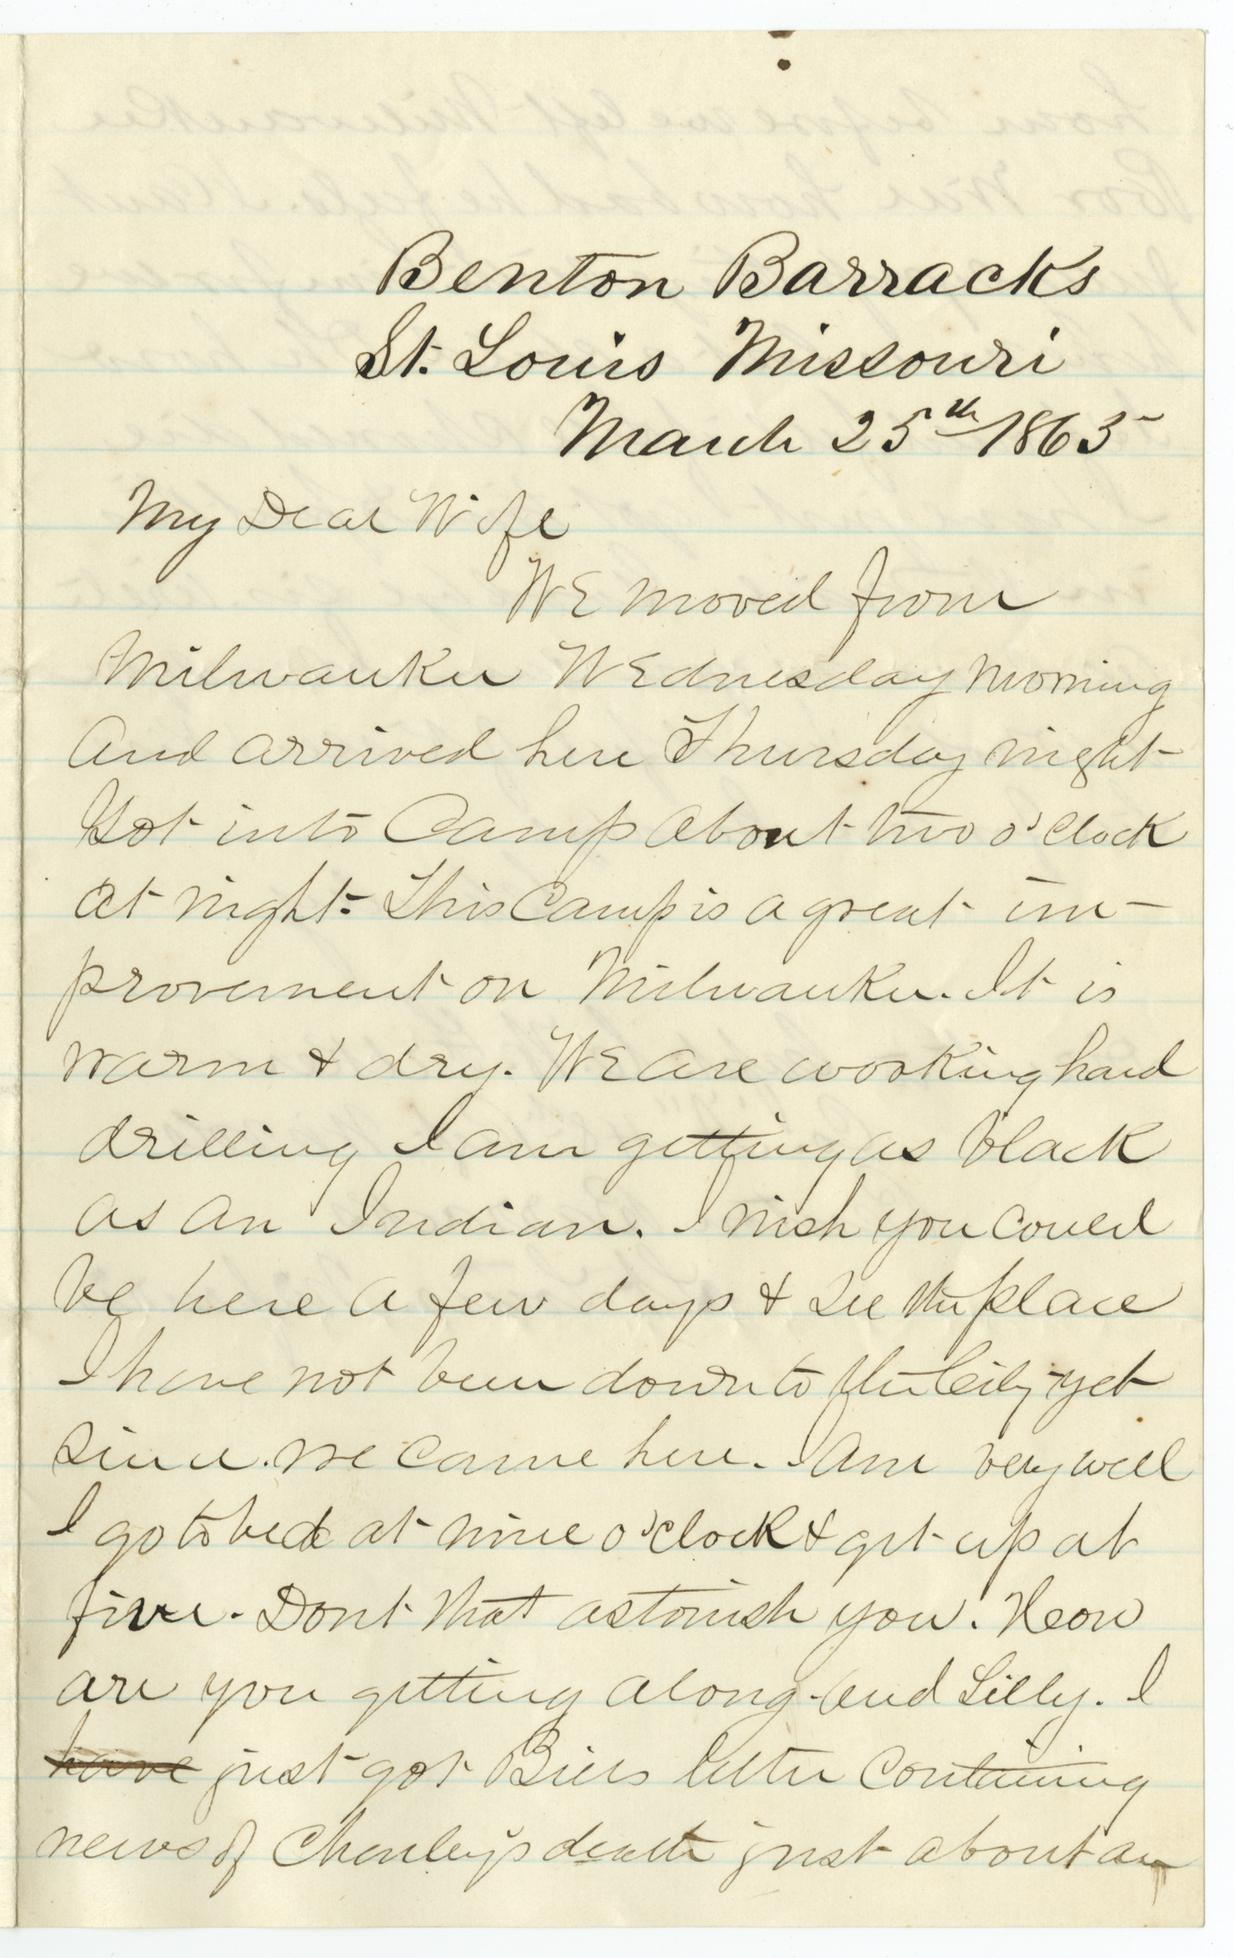 Benton Barracks
St. Louis Missouri
March 25th 1865
My Dear Wife
We moved from
Milwaukee Wednesday morning
And arrived here Thursday night
Got into Camp About two o'clock
at night. This Camp is a great im-
provement on Milwaukee. It is
warm & dry. We are working hard
drilling I am getting as black
as an Indian. I wish you could
be here a few days & see the place
I have not been down to the City yet
since we came here. I Am very well
I go to bed at nine o'clock & get up at
five. Dont that astonish you. How
are you getting along and Lilly. I
have just got Bills letter containing
news of Charley's death just about an